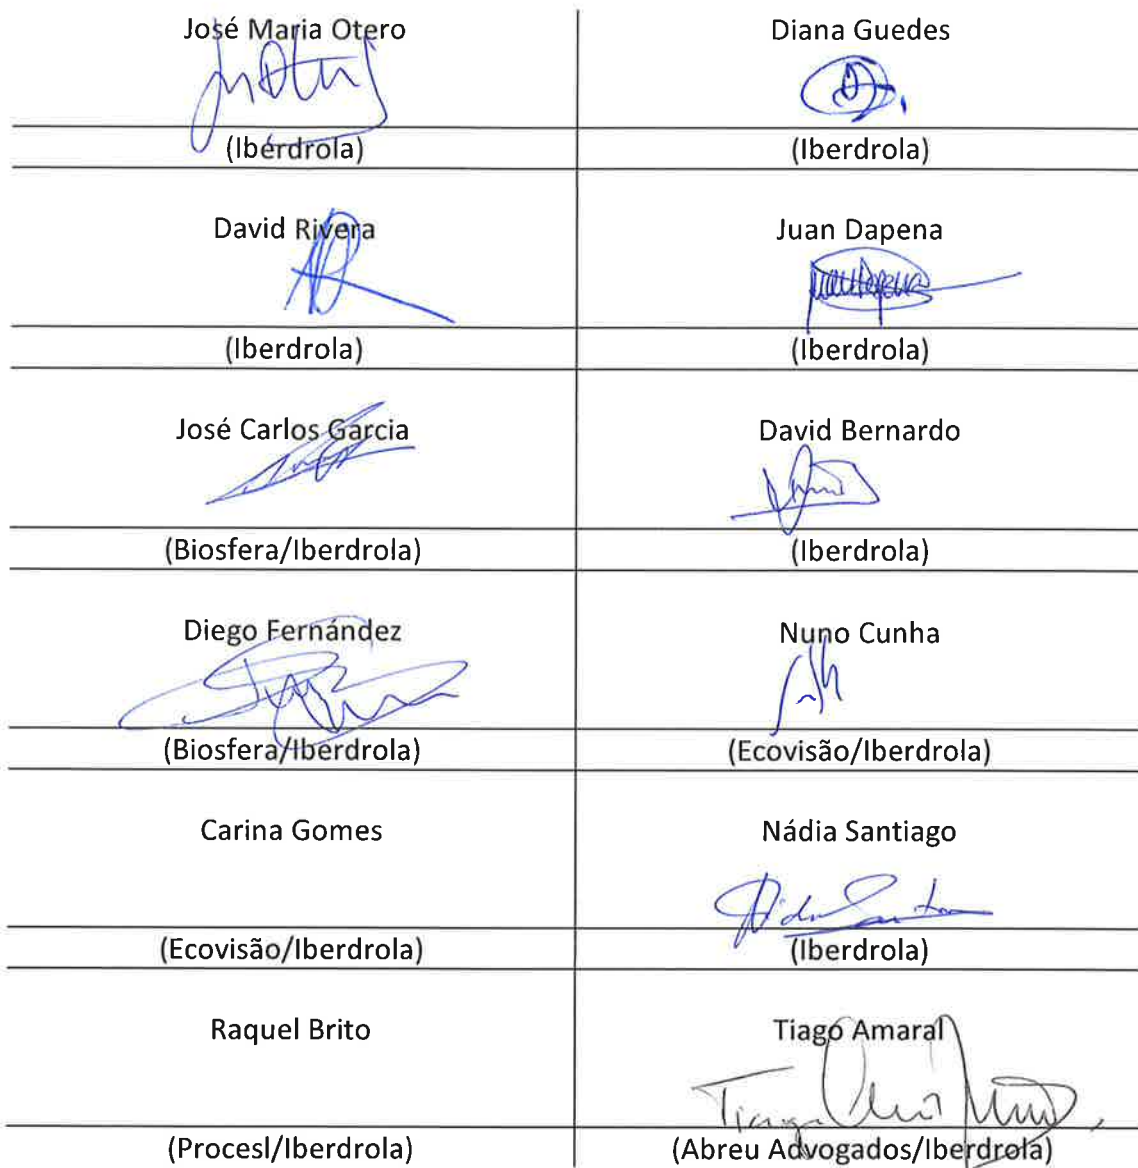 José Maria Otero
Diana Guedes
(Iberdrola)
(Iberdrola)
David Rivera
Juan Dapena
(Iberdrola)
(Iberdrola)
José Carlos Garcia
David Bernardo
(Biosfera/Iberdrola)
(Iberdrola)
Diego Fernández
Nuno Cunha
(Biosfera/Iberdrola)
(Ecovisão/Iberdrola)
Carina Gomes
Nádia Santiago
(Ecovisão/Iberdrola)
(Iberdrola)
Raquel Brito
Tiago Amaral
Tiago
(Procesl/Iberdrola)
(Abreu Advogados/Iberdrola)